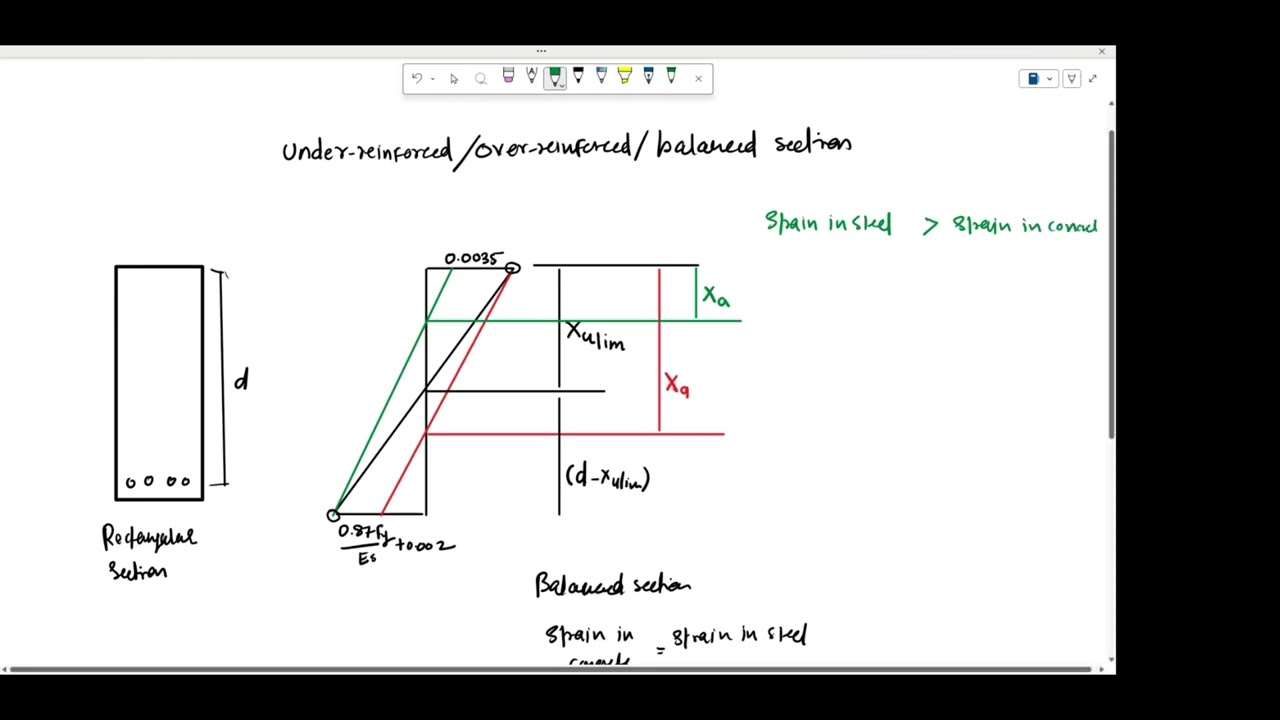 Under-reinforced/over-reinforced/balanced section
Strain in steel > Strain in concrete
0.0035
Xa
Xulim
d
Xa
(d-xulim)
0.87fy
Es
+0.002
Rectangular
Section
Balanced section
Strain in
concrete
= strain in steel